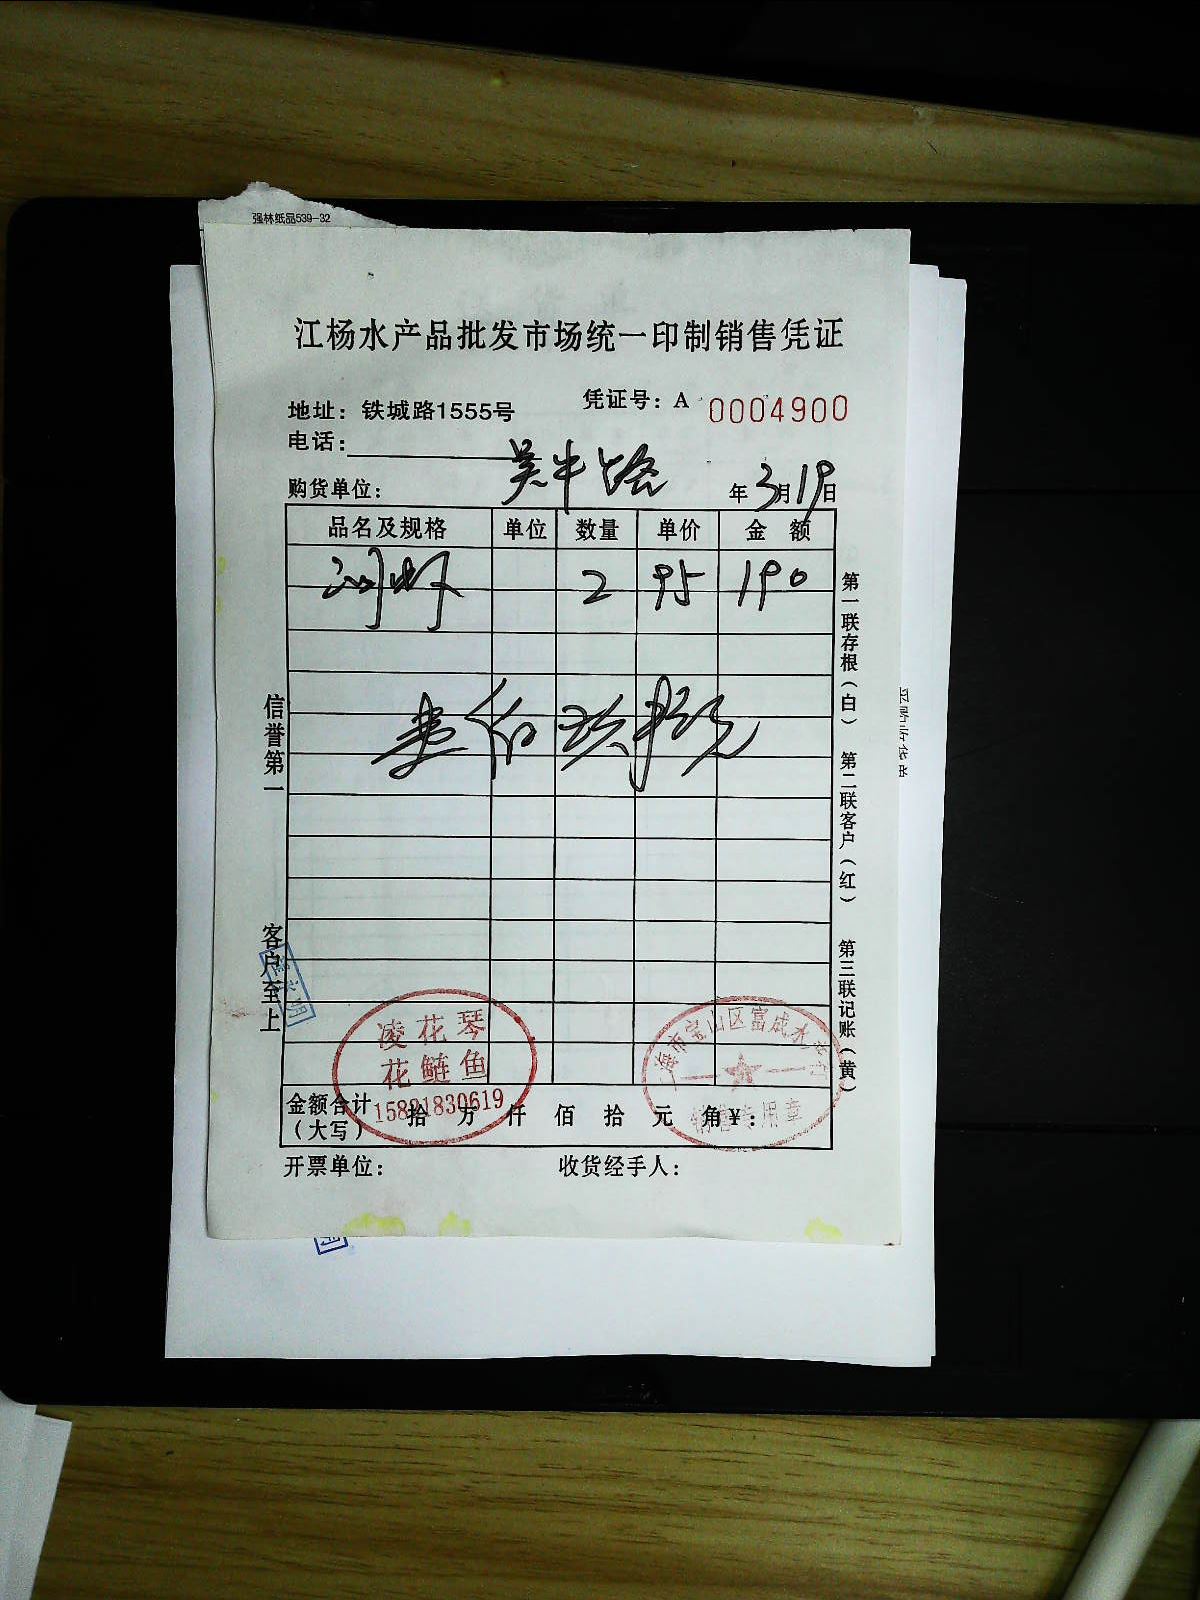 强林纸品539-32
江杨水产品批发市场统一印制销售凭证
地址：铁城路1555号
凭证号：A 0004900
电话：
购货单位：
年 3月19日
品名及规格 单位 数量 单价 金额
2 95 190
信誉第一
客户至上
第一联存根（白）
第二联客户（红）
第三联记账（黄）
凌花琴
花鲢鱼
15821830619
上海市宝山区富成水产行
销售专用章
金额合计（大写） 拾 万 仟 佰 拾 元 角¥：
开票单位： 收货经手人：